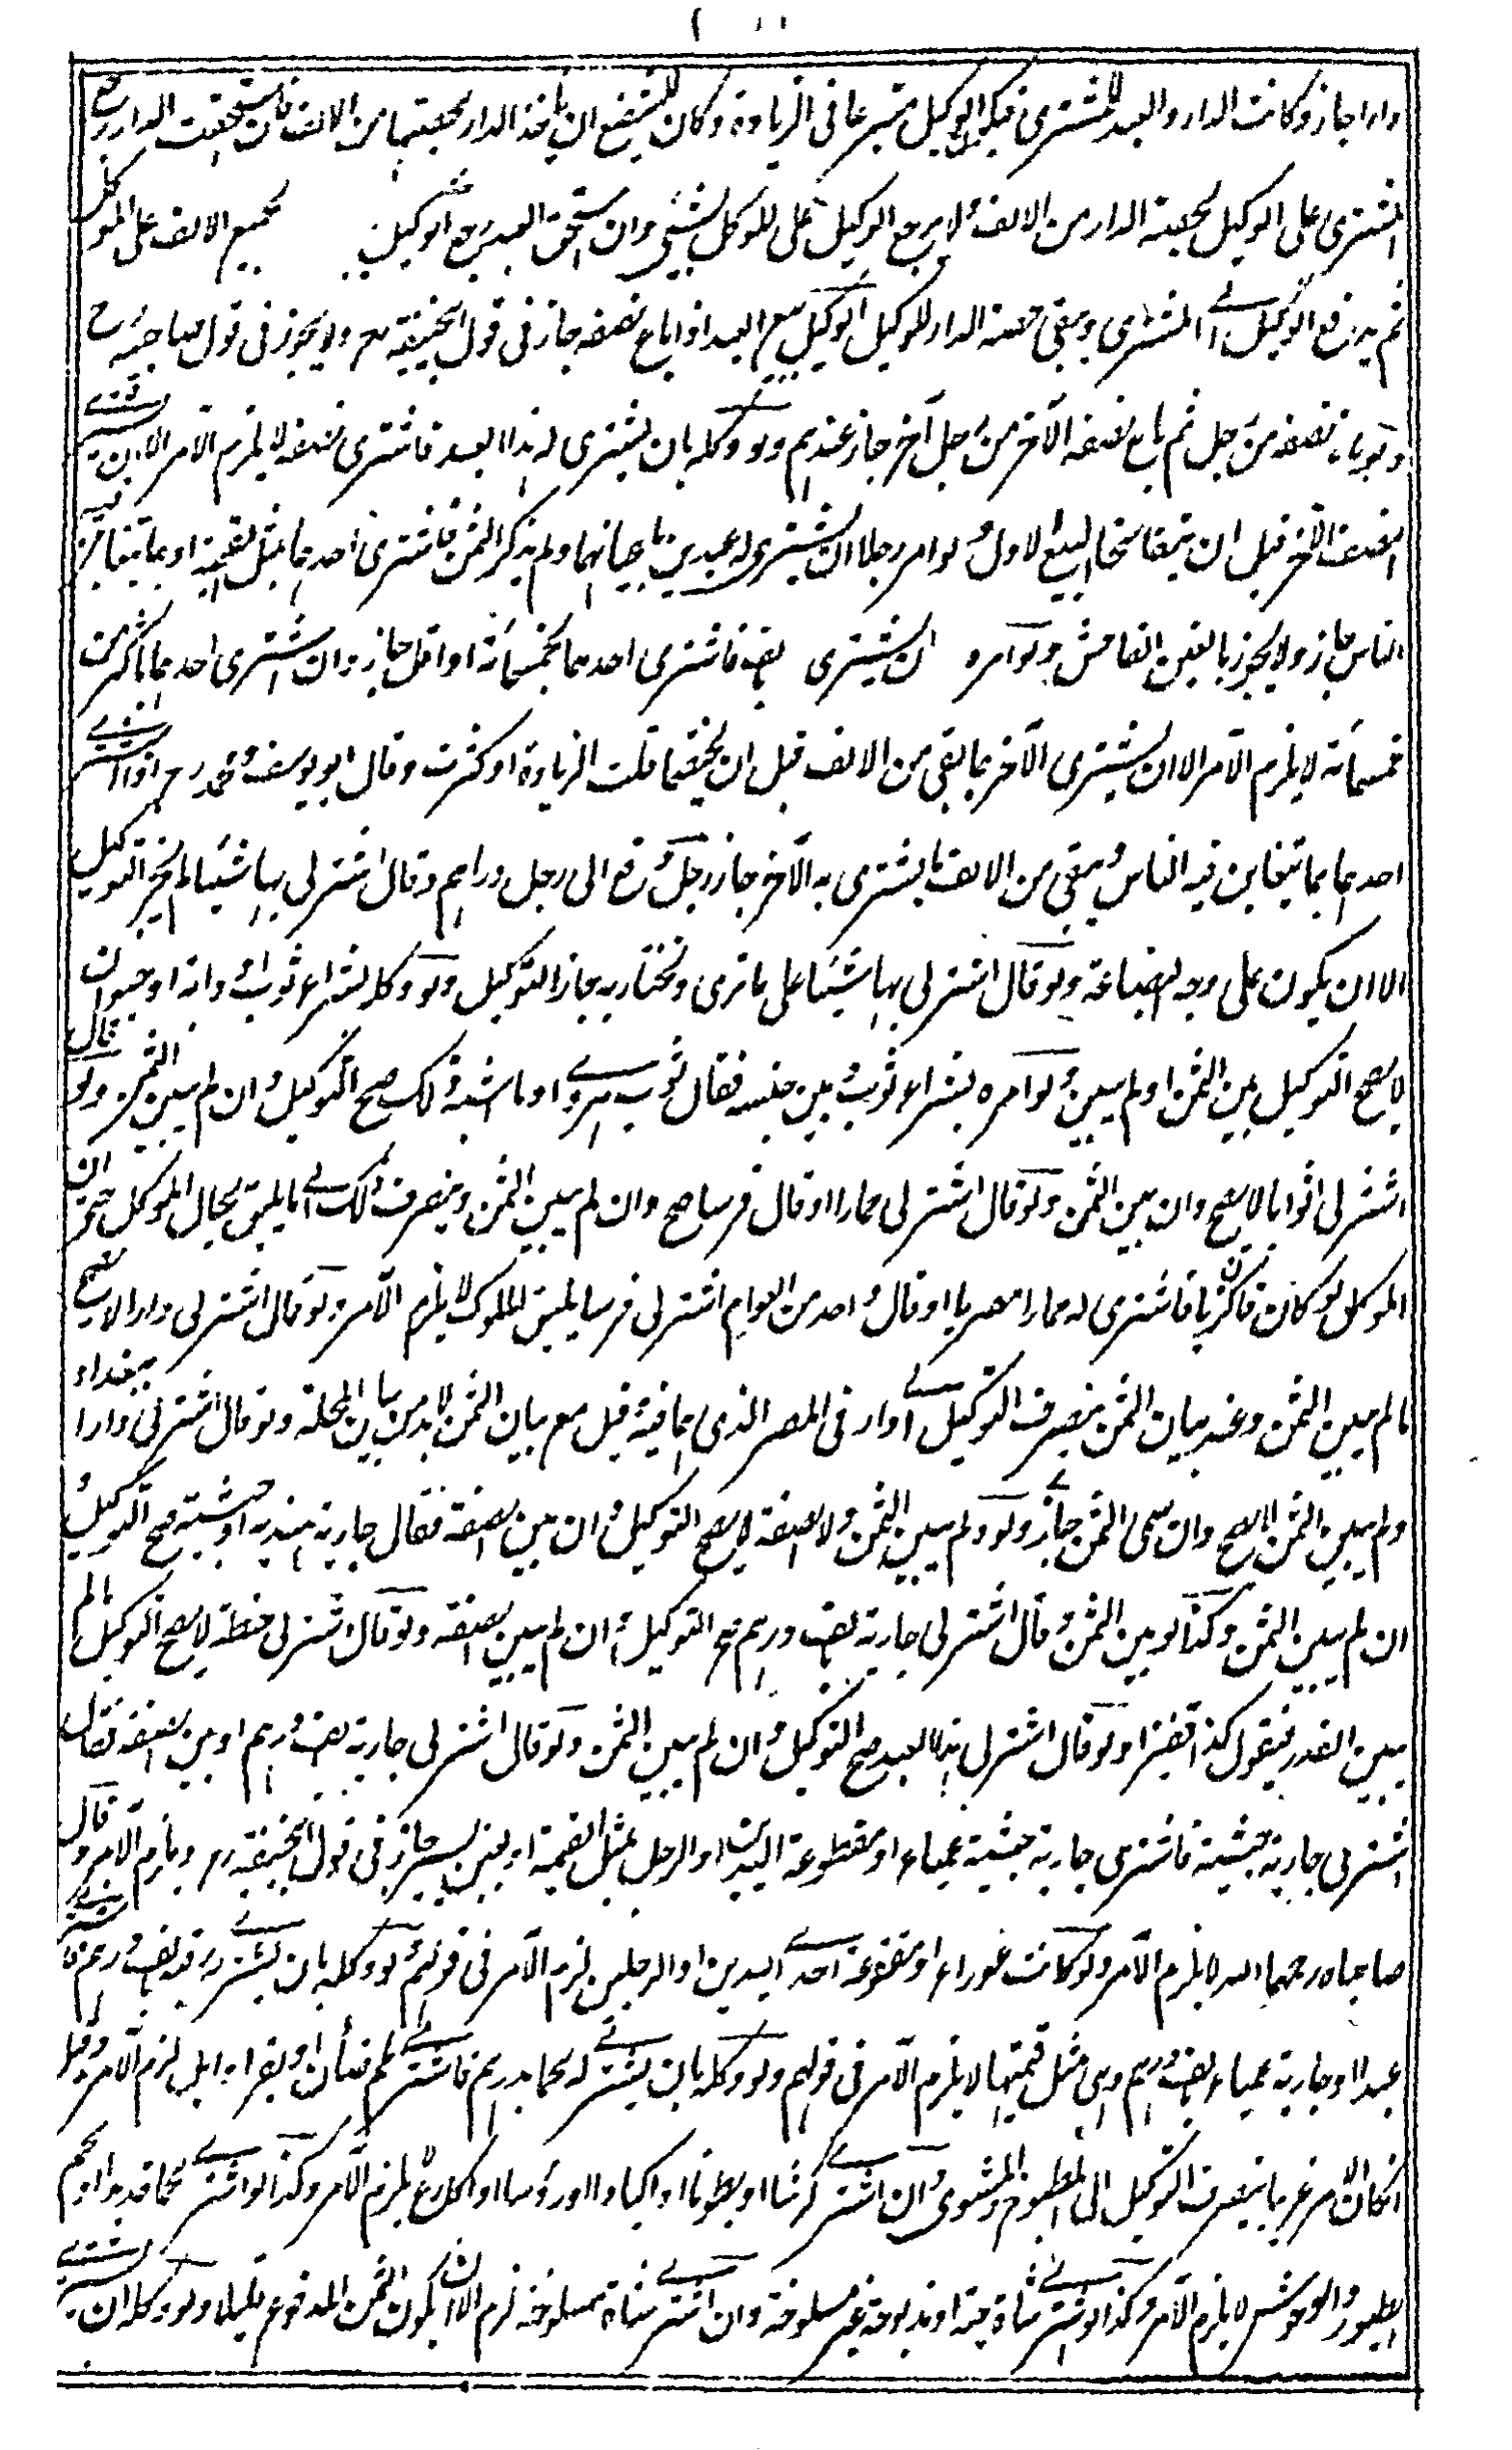 دارا جاز وكانت الدار والعبد للمشترى فيكون الوكيل متبرعا فى الزيادة وكان للشفيع ان ياخذ الدار بحصتها من الالف فان استحقت الدار رجع
المشترى على الوكيل بحصة الدار من الالف ولا يرجع الوكيل على الموكل بشئ وان استحق العبد رجع الوكيل بجميع الالف على الموكل
ثم يدفع الوكيل الى المشترى ويبقى حصة الدار للوكيل الوكيل ببيع العبد اذا باع نصفه جاز فى قول ابيحنيفة رح ولا يجوز فى قول صاحبيه رح
ولو باع نصفه من رجل ثم باع نصفه الآخر من رجل آخر جاز عندهم ولو وكله بان يشترى له هذا العبد فاشترى نصفه لا يلزم الآمر الا ان يشترى
النصف الآخر قبل ان يتفاسخا البيع الاول ولو امر رجلا ان يشترى له عبدين باعيانهما ولم يذكر الثمن فاشترى احدهما بمثل القيمة او بما يتغابن
الناس جاز ولا يجوز بالغبن الفاحش ولو امره ان يشترى بالف فاشترى احدهما بخمسمائة او اقل جاز وان اشترى احدهما باكثر من
خمسمائة لا يلزم الآمر الا ان يشترى الآخر بما بقى من الالف قبل ان يختصما قلت الزيادة او كثرت وقال ابو يوسف ومحمد رح اذا اشترى
احدهما بما يتغابن فيه الناس ويبقى من الالف ما يشترى به الآخر جاز رجل دفع الى رجل دراهم وقال اشتر لى بها شيئا لم يجز التوكيل
الا ان يكون على وجه البضاعة ولو قال اشتر لى بها شيئا على ما ترى وتختار به جاز التوكيل ولو وكله بشراء ثوب او دابة او حيوان
لا يصح التوكيل بين الثمن او لم يبين ولو امره بشراء ثوب وبين جنسه فقال ثوب هروى او ما اشبه ذلك صح التوكيل وان لم يبين الثمن ولو قال
اشتر لى اثوابا لا يصح وان بين الثمن ولو قال اشتر لى حمارا او قال فرسا صح وان لم يبين الثمن وينصرف ذلك الى ما يليق بحال الموكل حتى ان
الموكل لو كان فاشترى له حمارا مصريا او قال واحد من العوام اشتر لى فرسا يليق للملوك لا يلزم الآمر ولو قال اشتر لى دارا لا يصح
ما لم يبين الثمن وعند بيان الثمن ينصرف التوكيل الى دار فى المصر الذى هما فيه قيل مع بيان الثمن لا بد من بيان المحلة ولو قال اشتر لى دارا ببغداد
ولم يبين الثمن لا يصح وان سمى الثمن جاز ولو لم يبين الثمن ولا الصفة لا يصح التوكيل وان بين الصفة فقال جارية هندية او حبشية صح التوكيل
ان لم يبين الثمن وكذا لو بين الثمن وقال اشتر لى جارية بالف درهم صح التوكيل وان لم يبين الصفة ولو قال اشتر لى حنطة لا يصح التوكيل ما لم
يبين القدر فيقول كذا قفيزا ولو قال اشتر لى هذا العبد صح التوكيل وان لم يبين الثمن ولو قال اشتر لى جارية بالف درهم او بين الصفة فقال
اشتر لى جارية حبشية فاشترى جارية حبشية عمياء او مقطوعة اليدين او الرجل بمثل القيمة او بغبن يسير جاز فى قول ابيحنيفة رح ويلزم الآمر وقال
صاحباه رحمهما الله لا يلزم الآمر ولو كانت عوراء او مقطوعة احدى اليدين او الرجلين لزم الآمر فى قولهم ولو وكله بان يشترى رقبة بالف درهم فاشترى
عبدا او جارية عمياء بالف درهم وهى مثل قيمتها لا يلزم الآمر فى قولهم ولو وكله بان يشترى له لحما بدرهم فاشترى لحم ضأن او بقر او ابل لزم الآمر وقيل
ان كان الآمر غريبا ينصرف التوكيل الى المطبوخ والمشوى وان اشترى كرشا او بطونا او اكبادا او رؤسا او اكارع لا يلزم الآمر وكذا لو اشترى لحما قديدا او لحم
الطيور والوحوش لا يلزم الآمر وكذا لو اشترى شاة حية او مذبوحة غير مسلوخة وان اشترى شاة مسلوخة لزم الا ان يكون الثمن المدفوع قليلا ولو وكله ان يشترى